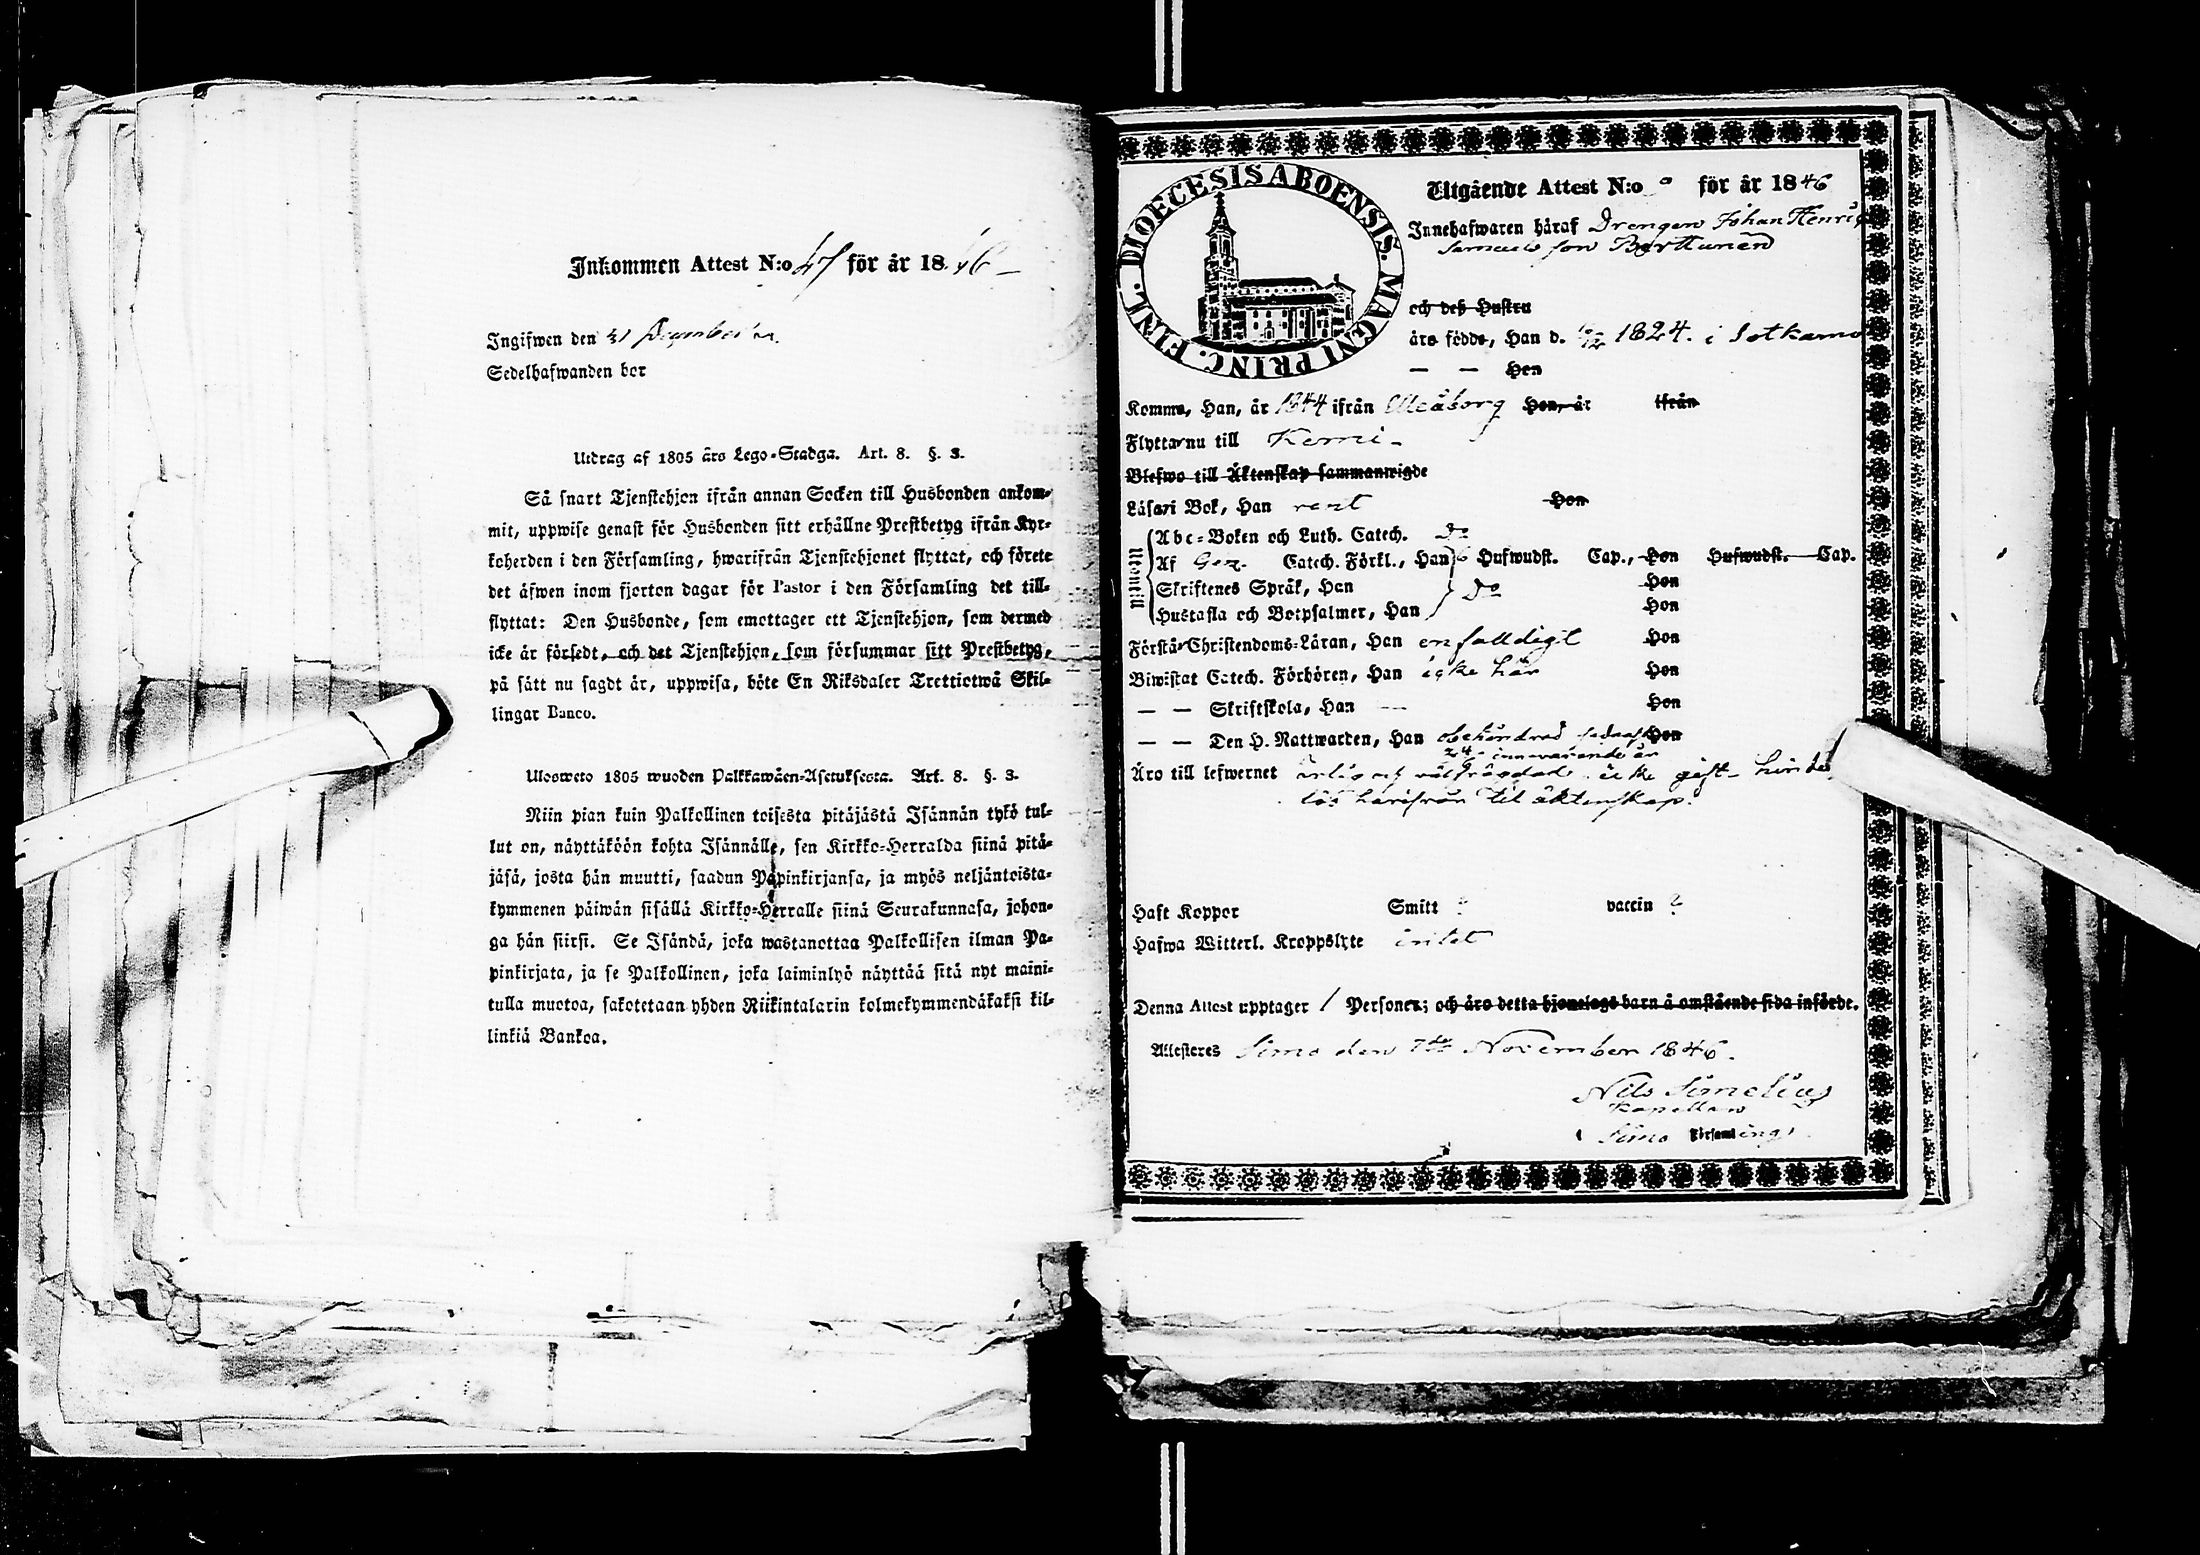 Inkommen Attest N:o 47 för år 1846
Ingifwen den 31 December
Sedelhafwanden bor
Utdrag af 1805 års Lego-Stadga. Art. 8. §. 3.
Så snart Tjenstehjon ifrån annan Socken till Husbonden ankom-
mit, uppwise genast för Husbonden sitt erhållne Prestbetyg ifrån Kyr-
koherden i den Församling, hwarifrån Tjenstehjonet flyttat, och förete
det äfwen inom fjorton dagar för Pastor i den Församling det till-
flyttat: Den Husbonde, som emottager ett Tjenstehjon, som dermed
icke är försedt, och det Tjenstehjon, som försummar sitt Prestbetyg,
på sätt nu sagdt är, uppwisa, böte En Riksdaler Trettiotwå Skil-
lingar Banco.
Ulosweto 1805 wuoden Palkkawäen-Asetuksesta. Art. 8. §. 3.
Niin pian kuin Palkollinen toisesta pitäjästä Isännän tykö tul-
lut on, näyttäköön kohta Isännälle, sen Kirkko-Herralda siinä pitä-
jäsä, josta hän muutti, saadun Papinkirjansa, ja myös neljäntoista-
kymmenen päiwän sisällä Kirkko-Herralle siinä Seurakunnasa, johon-
ga hän siirsi. Se Isändä, joka wastanottaa Palkollisen ilman Pa-
pinkirjata, ja se Palkollinen, joka laiminlyö näyttää sitä nyt maini-
tulla muotoa, sakotetaan yhden Riikintalarin kolmekymmendäkaksi kil-
linkiä Bankoa.
DIOECESIS ABOENSIS. MAGNI PRINC. FINL.
Utgående Attest N:o för år 1846
Innehafwaren häraf Drengen Johan Henric
Samuels son Berttunen
och deß Hustru
äro födde, Han d. 1824. i Sotkamo
— — Hon
Komma, Han, år 1844 ifrån Uleåborg Hon, år ifrån
Flytta nu till Kemi
Blefwo till Äktenskap sammanwigde
Läsa i Bok, Han rent Hon
Utantill
Abc-Boken och Luth. Catech. do
Af Gez. Catech. Förkl., Han 6 Hufwudst. Cap., Hon Hufwudst. Cap.
Skriftenes Språk, Han do Hon
Hustafla och Botpsalmer, Han Hon
Förstå Christendoms-Läran, Han enfalldigt Hon
Biwistat Catech. Förhören, Han icke här Hon
— — Skriftskola, Han — Hon
— — Den H. Nattwarden, Han obehindrad Hon
innewarande år
Äro till lefwernet ärlig och wälfrägdad icke gift hinder
lös härifrån til äktenskap.
Haft Koppor Smitt ? vaccin ?
Hafwa Witterl. Kroppslyte intet
Denna Attest upptager 1 Personer; och äro detta hjonelags barn å omstående sida införde.
Attesteres Simo den 7de November 1846.
Nils Simelius
Kapellan
Simo Församling